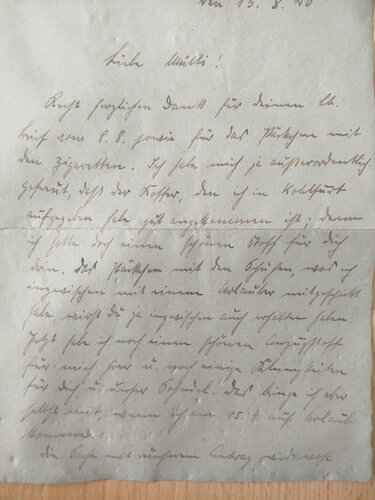 den 15. 8. 40
Liebe Mutti!
Recht herzlichen Dank für deinen lb.
Brief vom 8.8. sowie für das Päckchen mit
den Zigaretten. Ich habe mich ja außerordentlich
gefreut, daß der Koffer, den ich in Kohlfurt
aufgegeben habe gut angekommen ist. denn
ich hatte doch einen schönen Stoff für dich
drin. das Päckchen mit den Schuhen was ich
inzwischen mit einem Urlauber mitgeschickt
habe, wirst du ja inzwischen auch erhalten haben
Jetzt habe ich noch einen schönen Anzugstoff
für mich hier u. noch einige Kleinigkeiten
für dich u. unser. das bringe ich aber
selbst mit, wenn ich am 15.9. auf Urlaub
komme.
die Sache mit unserem Antrag wird wohl